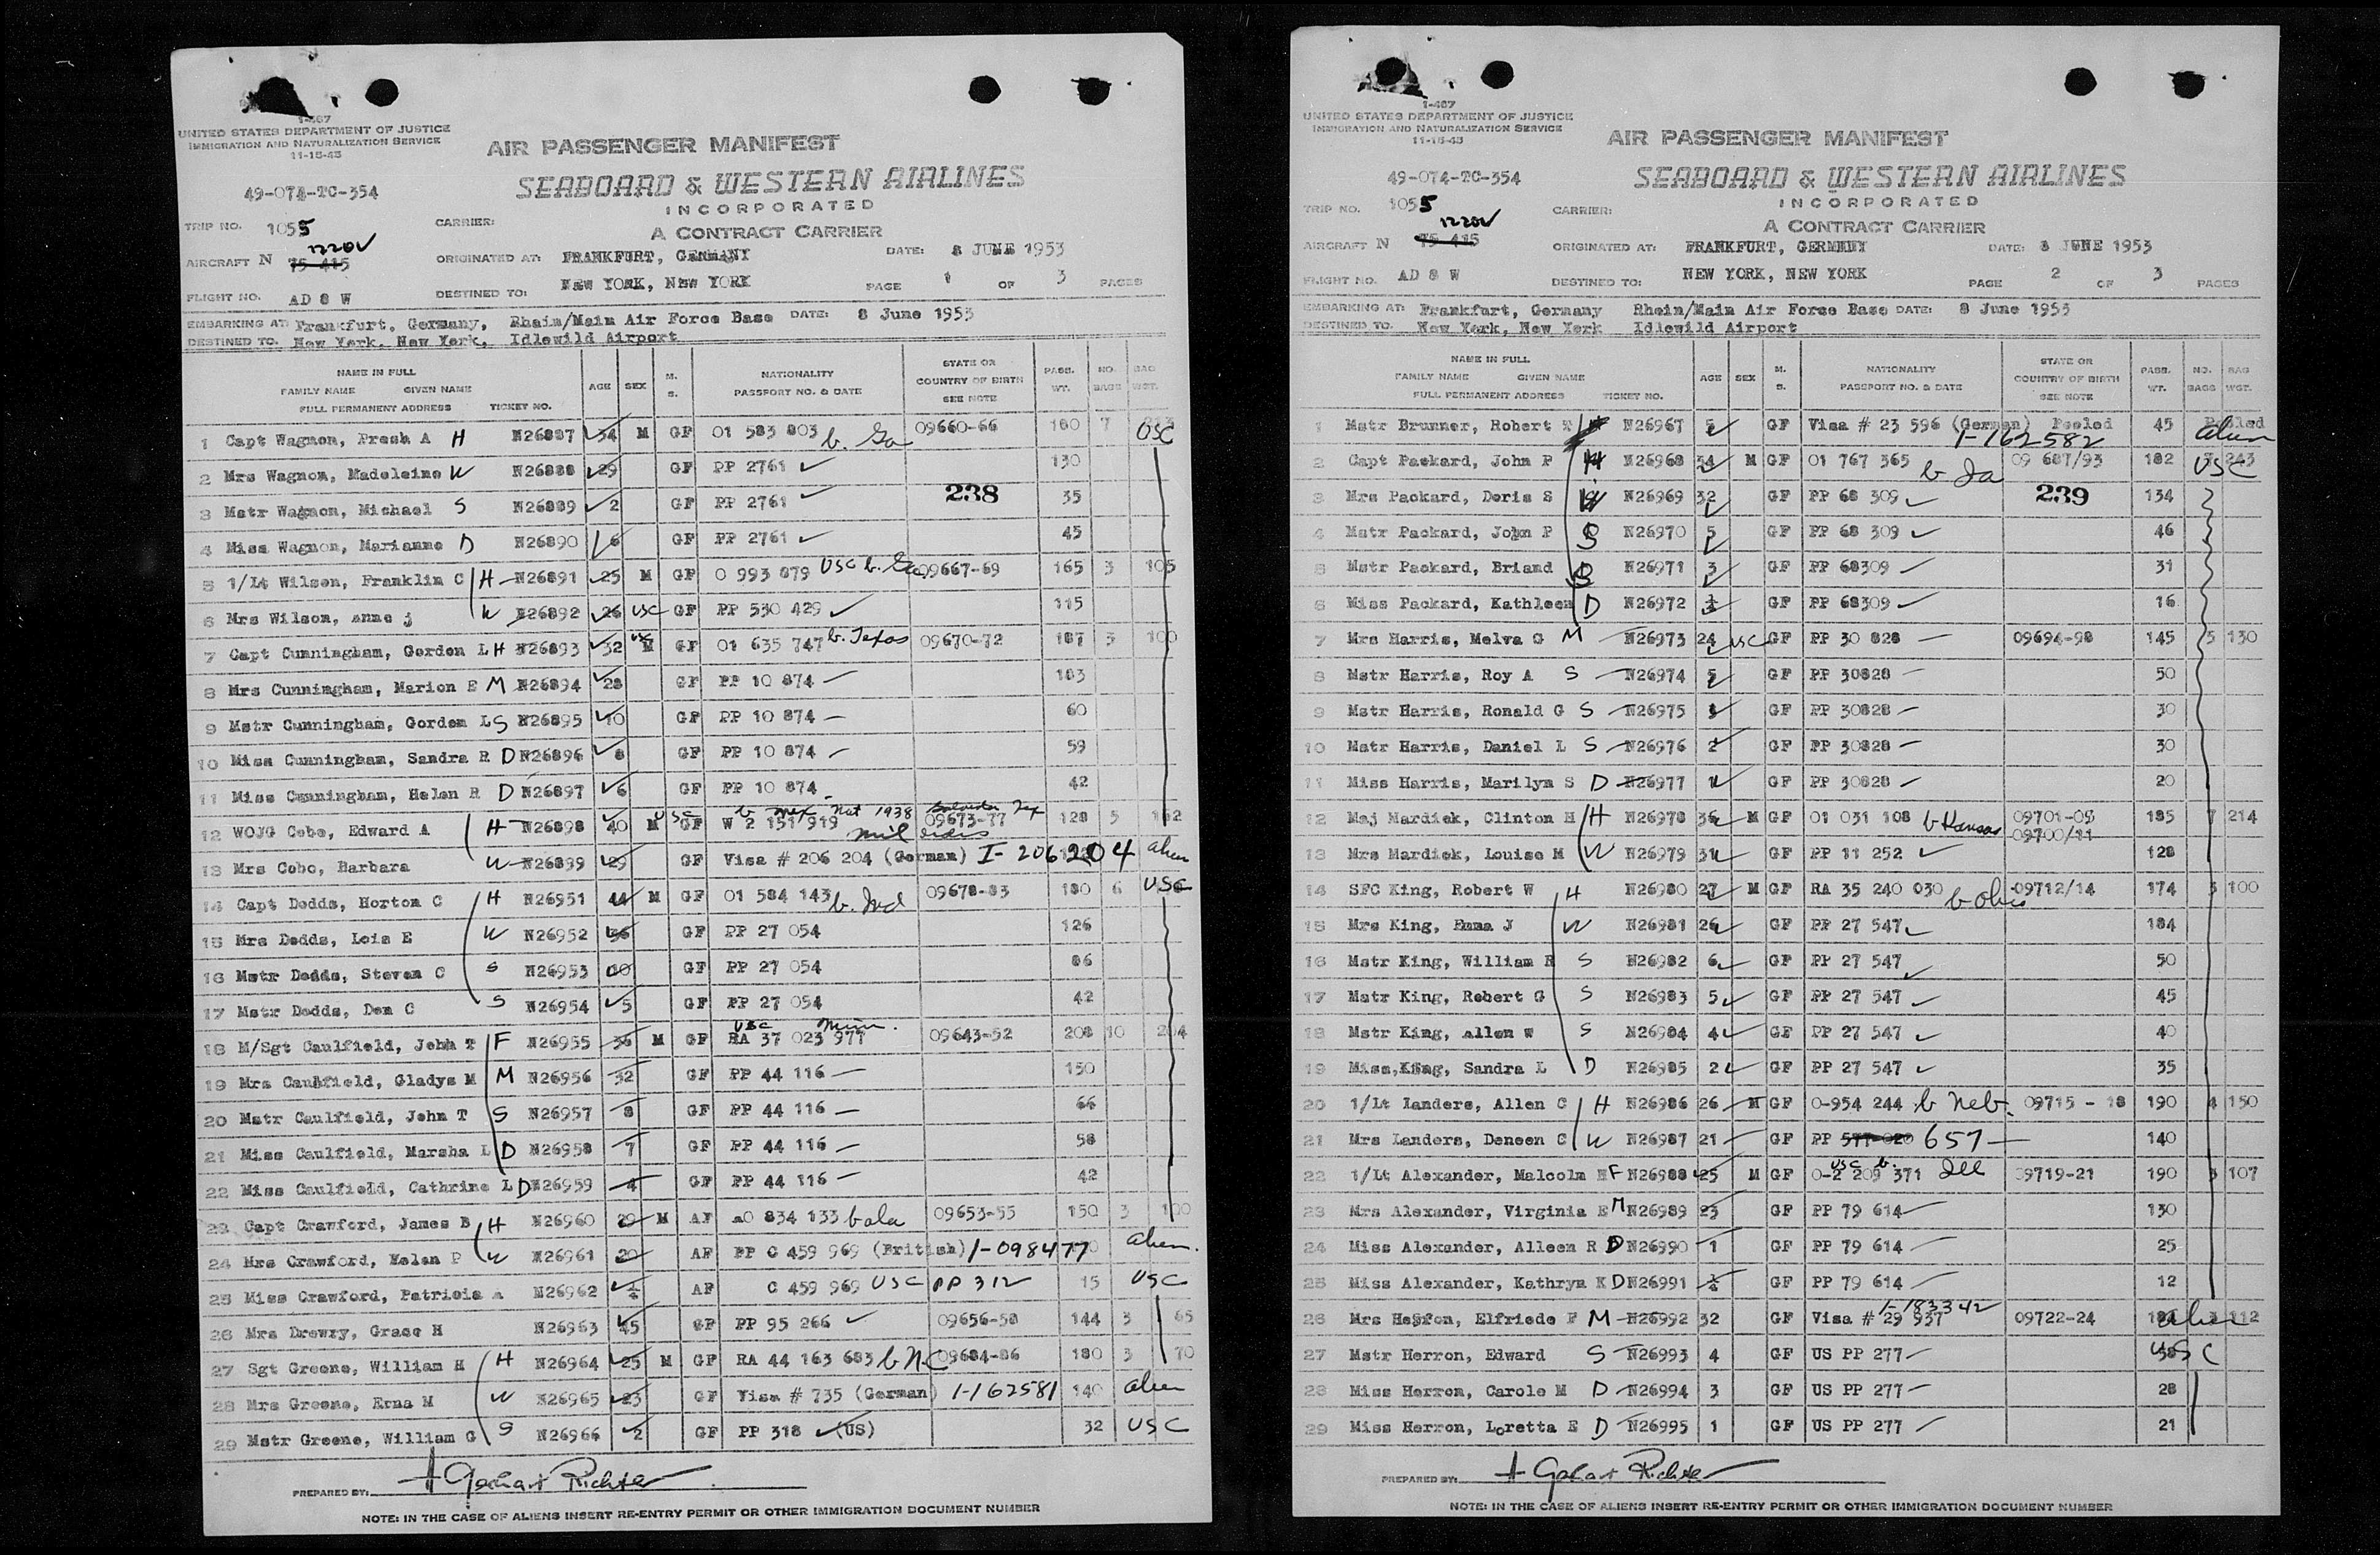 1-467
UNITED STATES DEPARTMENT OF JUSTICE
IMMIGRATION AND NATURALIZATION SERVICE
11-15-45
AIR PASSENGER MANIFEST
49-074-TC-354
SEABOARD & WESTERN AIRLINES
INCORPORATED
TRIP NO. 1055 CARRIER: A CONTRACT CARRIER
1220V
AIRCRAFT N 75 415 ORIGINATED AT: FRANKFURT, GERMANY DATE: 8 JUNE 1953
FLIGHT NO. AD 8 W DESTINED TO: NEW YORK, NEW YORK PAGE 1 OF 3 PAGES
EMBARKING AT: Frankfurt, Germany, Rhein/Main Air Force Base DATE: 8 June 1953
DESTINED TO. New York, New York, Idlewild Airport
NAME IN FULL M. NATIONALITY STATE OR PASS. NO. BAG
FAMILY NAME GIVEN NAME AGE SEX S. PASSPORT NO. & DATE COUNTRY OF BIRTH WT. BAGS WGT.
FULL PERMANENT ADDRESS TICKET NO. SEE NOTE
1 Capt Wagnon, Presh A H N26887 34 M GF 01 583 803 b. Ga 09660-66 160 7 USC
2 Mrs Wagnon, Madeleine W N26888 29 GF PP 2761 130
238
3 Mstr Wagnon, Michael S N26889 2 GF PP 2761 35
4 Miss Wagnon, Marianne D N26890 6 GF PP 2761 45
5 1/Lt Wilson, Franklin C H N26891 25 M GF O 993 879 USC b. Ga 09667-69 165 3 105
6 Mrs Wilson, Anne j W N26892 26 USC GF PP 530 429 115
7 Capt Cunningham, Gordon L H N26893 32 USC M GF 01 635 747 b. Texas 09670-72 187 3 100
8 Mrs Cunningham, Marion E M N26894 28 GF PP 10 874 103
9 Mstr Cunningham, Gordon L S N26895 10 GF PP 10 874 60
10 Miss Cunningham, Sandra R D N26896 8 GF PP 10 874 59
11 Miss Cunningham, Helen R D N26897 6 GF PP 10 874 42
12 WOJG Cobo, Edward A H N26898 40 M USC GF W 2 151 919 b mex Nat 1938 09673-77 128 5 162
13 Mrs Cobo, Barbara W N26899 29 GF Visa # 206 204 (German) I-206204 alien
14 Capt Dodds, Horton C H N26951 44 M GF 01 584 143 b. Ind 09678-83 180 6 USC
15 Mrs Dodds, Lois E W N26952 36 GF PP 27 054 126
16 Mstr Dodds, Steven C S N26953 10 GF PP 27 054 86
17 Mstr Dodds, Don C S N26954 5 GF PP 27 054 42
18 M/Sgt Caulfield, John T F N26955 36 M GF USC Minn. RA 37 023 977 09643-52 208 10 204
19 Mrs Caulfield, Gladys M M N26956 32 GF PP 44 116 150
20 Mstr Caulfield, John T S N26957 8 GF PP 44 116 66
21 Miss Caulfield, Marsha L D N26958 7 GF PP 44 116 58
22 Miss Caulfield, Cathrine L D N26959 4 GF PP 44 116 42
23 Capt Crawford, James B H N26960 29 M AF AO 834 133 b ala 09653-55 150 3 100
24 Mrs Crawford, Helen P W N26961 20 AF PP C 459 969 (British) 1-098477 alien.
25 Miss Crawford, Patricia A N26962 AF C 459 969 USC PP 312 15 USC
26 Mrs Drewry, Grace H N26963 45 GF PP 95 266 09656-58 144 3 65
27 Sgt Greene, William H H N26964 25 M GF RA 44 163 683 b N.C 09684-86 180 3 70
28 Mrs Greene, Erna M W N26965 23 GF Visa # 735 (German) 1-162581 140 alien
29 Mstr Greene, William G S N26966 2 GF PP 318 (US) 32 USC
PREPARED BY:
NOTE: IN THE CASE OF ALIENS INSERT RE-ENTRY PERMIT OR OTHER IMMIGRATION DOCUMENT NUMBER
1-467
UNITED STATES DEPARTMENT OF JUSTICE
IMMIGRATION AND NATURALIZATION SERVICE
11-15-45
AIR PASSENGER MANIFEST
49-074-TC-354
SEABOARD & WESTERN AIRLINES
INCORPORATED
TRIP NO. 1055 CARRIER: A CONTRACT CARRIER
1220V
AIRCRAFT N 75 415 ORIGINATED AT: FRANKFURT, GERMNEY DATE: 8 JUNE 1953
FLIGHT NO. AD 8 W DESTINED TO: NEW YORK, NEW YORK PAGE 2 OF 3 PAGES
EMBARKING AT: Frankfurt, Germany Rhein/Main Air Force Base DATE: 8 June 1953
DESTINED TO. New York, New York Idlewild Airport
NAME IN FULL M. NATIONALITY STATE OR PASS. NO. BAG
FAMILY NAME GIVEN NAME AGE SEX S. PASSPORT NO. & DATE COUNTRY OF BIRTH WT. BAGS WGT.
FULL PERMANENT ADDRESS TICKET NO. SEE NOTE
1 Mstr Brunner, Robert T N26967 5 GF Visa # 23 596 (German) Pooled 1-162582 45 Pooled alien
2 Capt Packard, John P H N26968 34 M GF 01 767 365 b Ia 09 687/93 182 7 243 USC
239
3 Mrs Packard, Doris S W N26969 32 GF PP 68 309 134
4 Mstr Packard, John P S N26970 5 GF PP 68 309 46
5 Mstr Packard, Briand S N26971 3 GF PP 68309 31
6 Miss Packard, Kathleen D N26972 GF PP 68309 16
7 Mrs Harris, Melva G M N26973 24 USC GF PP 30 828 09694-98 145 5 130
8 Mstr Harris, Roy A S N26974 5 GF PP 30828 50
9 Mstr Harris, Ronald G S N26975 3 GF PP 30828 30
10 Mstr Harris, Daniel L S N26976 2 GF PP 30828 30
11 Miss Harris, Marilyn S D N26977 1 GF PP 30828 20
12 Maj Mardick, Clinton H H N26978 36 M GF 01 031 108 b Kansas 09701-05 09700/11 185 7 214
13 Mrs Mardick, Louise M W N26979 31 GF PP 11 252 128
14 SFC King, Robert W H N26980 27 M GF RA 35 240 030 b Ohio 09712/14 174 3 100
15 Mrs King, Emma J W N26981 26 GF PP 27 547 184
16 Mstr King, William R S N26982 6 GF PP 27 547 50
17 Mstr King, Robert G S N26983 5 GF PP 27 547 45
18 Mstr King, Allen W S N26984 4 GF PP 27 547 40
19 Miss, King, Sandra L D N26985 2 GF PP 27 547 35
20 1/Lt Landers, Allen C H N26986 26 M GF O-954 244 b Neb. 09715 - 18 190 4 150
21 Mrs Landers, Deneen C W N26987 21 GF PP 577 020 657 140
22 1/Lt Alexander, Malcolm H F N26988 25 M GF O-2 209 371 USC b. Ill 09719-21 190 3 107
23 Mrs Alexander, Virginia E M N26989 23 GF PP 79 614 130
24 Miss Alexander, Alleen R D N26990 1 GF PP 79 614 25
25 Miss Alexander, Kathryn K D N26991 GF PP 79 614 12
26 Mrs Herron, Elfriede F M N26992 32 GF Visa # 29 937 1-183342 09722-24 alien 112
27 Mstr Herron, Edward S N26993 4 GF US PP 277 38 USC
28 Miss Herron, Carole M D N26994 3 GF US PP 277 28
29 Miss Herron, Loretta E D N26995 1 GF US PP 277 21
PREPARED BY:
NOTE: IN THE CASE OF ALIENS INSERT RE-ENTRY PERMIT OR OTHER IMMIGRATION DOCUMENT NUMBER